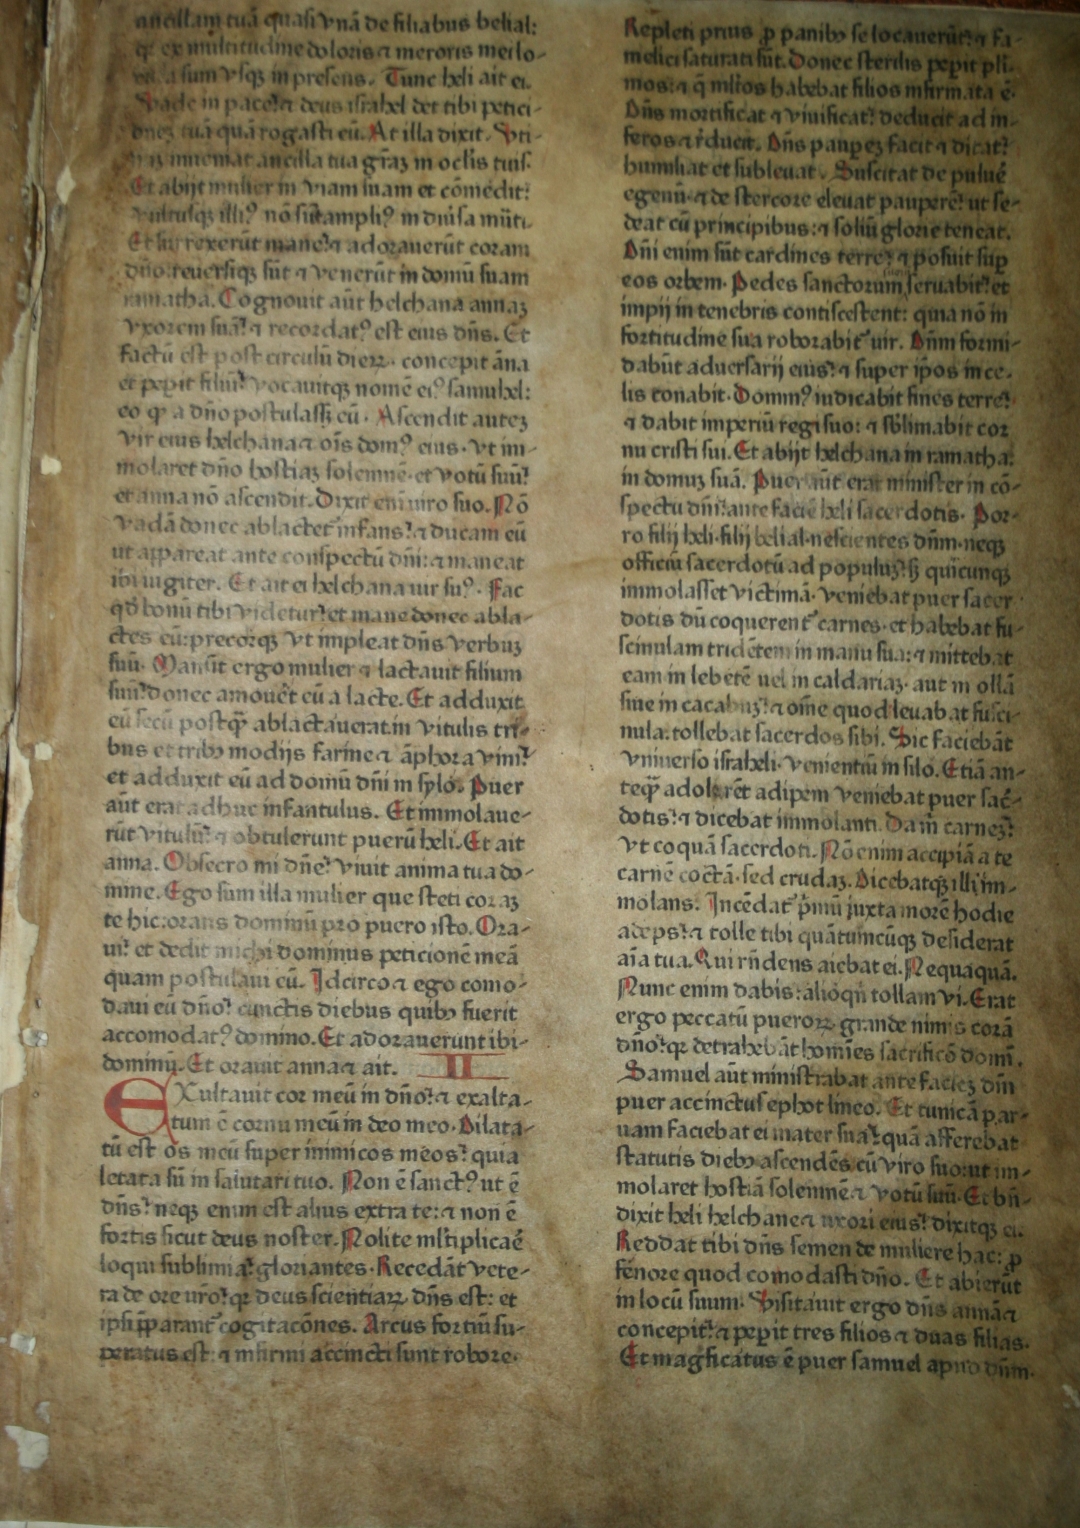 ancillam tuā quasi vnā de filiabus belial:
qꝛ ex multitudine doloris ⁊ meroris mei lo-
sum vsqꝫ in presens. Tunc heli ait ei.
Vade in pace: ⁊ deus israhel det tibi petici-
tuā quā rogasti eū. At illa dixit. Vti-
inueniat ancilla tua grāꝫ in oclis tuis.
Et abijt mulier in viam suam et cōmedit:
vultusqꝫ illiꝰ nō sūt ampliꝰ in diūsa mūti.
Et surrexerūt mane: ⁊ adorauerūt coram
dn̄o: reuersiqꝫ sūt ⁊ venerūt in domū suam
ramatha. Cognouit aūt helchana annaꝫ
vxorem suā: ⁊ recordatꝰ est eius dn̄s. Et
factū est post circulū dieꝝ. concepit āna
et peꝑit filiū: vocauitqꝫ nomē eiꝰ samuhel:
eo qꝙ a dn̄o postulasset̄ eū. Ascendit auteꝫ
vir eius helchana ⁊ oīs domꝰ eius. vt im-
molaret dn̄o hostiaꝫ solemnē. et votū suū:
et anna nō ascendit. Dixit eni viro suo. Nō
vadā donec ablactet̄ infans: ⁊ ducam eū
ut appareat ante conspectū dn̄i: ⁊ maneat
ibi iugiter. Et ait ei helchana uir suꝰ. Fac
qd̄ bonū tibi videtur: et mane donec abla-
ctes eū: precorqꝫ vt impleat dn̄s verbuꝫ
suū. Mansit ergo mulier ⁊ lactauit filium
suū: donec amouēt eū a lacte. Et adduxit
eū secū postqꝙ̄ ablactauerat. in vitulis tri-
bus et tribꝫ modijs farine ⁊ āphora vini:
et adduxit eū ad domū dn̄i in sylo. Puer
aūt erat adhuc infantulus. Et immolaue-
rūt vitulū: ⁊ obtulerunt puerū heli. Et ait
anna. Obsecro mi dn̄e: viuit anima tua do-
mine. Ego sum illa mulier que steti coraꝫ
te hic: orans dominū pro puero isto. Ora-
ui: et dedit michi dominus peticionē meā
quam postulaui eū. Idcirco ⁊ ego como-
daui eū dn̄o: cunctis diebus quibꝫ fuerit
accomodatꝰ domino. Et adorauerunt ibi-
dominū. Et orauit anna ⁊ ait. II
EXultauit cor meū in dn̄o: ⁊ exalta-
tum ē cornu meū in deo meo. Dilata-
tū est os meū super inimicos meos: quia
letata sū in salutari tuo. Non ē sanctꝰ ut ē
dn̄s: neqꝫ enim est alius extra te: ⁊ non ē
fortis sicut deus noster. Nolite ml̄tiplicaē
loqui sublimia: gloriantes. Recedāt vete-
ra de ore ur̄o: qꝛ deus scientiaꝝ dn̄s est: et
ipsi p̄parant̄ cogitacōnes. Arcus fortiū su-
peratus est: ⁊ infirmi accincti sunt robore.
Repleti prius ꝓ panibꝫ se locauerūt: ⁊ fa-
melici saturati sūt. Donec sterilis peꝑit pli.
mos: ⁊ q̄ ml̄tos habebat filios infirmata ē.
Dn̄s mortificat ⁊ viuificat: deducit ad in-
feros ⁊ r̄ducit. Dn̄s pauꝑeꝫ facit ⁊ ditat:
humiliat et subleuat. Suscitat de puluē
egenū. ⁊ de stercore eleuat pauperē: ut se-
deat cū principibus: ⁊ soliū glorie teneat.
Dn̄i enim sūt cardines terre: ⁊ posuit suꝑ
eos orbem. Pedes sanctorum seruabit: et
impij in tenebris conticescent: quia nō in
fortitudine sua roborabit̄ uir. Dn̄m formi-
dabūt aduersarij eius: ⁊ super ip̄os in ce.
lis tonabit. Dominꝰ iudicabit fines terre:
⁊ dabit imperiū regi suo: ⁊ sb̄limabit cor
nu cristi sui. Et abijt helchana in ramatha:
in domuꝫ suā. Puer aūt erat minister in cō-
spectu dn̄i: ante faciē heli sacerdotis. Por-
ro filij heli. filij belial. nescientes dn̄m. neqꝫ
officiū sacerdotū ad populuꝫ: sꝫ quicunqꝫ
immolasset victimā. veniebat puer sacer
dotis dū coquerent̄ carnes. et habebat fu-
scinulam tridētem in manu sua: ⁊ mittebat
eam in lebetē uel in caldariaꝫ. aut in ollā
siue in cacabuꝫ: ⁊ om̄e quod leuabat fusci-
nula. tollebat sacerdos sibi. Sic faciebāt
vniuerso israheli. venientiū in silo. Etiā an-
teqꝙ̄ adolerēt adipem veniebat puer sac̄-
dotis: ⁊ dicebat immolanti. Da m̄ carneꝫ:
vt coquā sacerdoti. Nō enim accipiā a te
carnē coctā. sed crudaꝫ. Dicebatqꝫ illi im-
molans. Incēdat̄ p̄mū juxta morē hodie
adeps: ⁊ tolle tibi quātumcūqꝫ desiderat
aīa tua. Qui rn̄dens aiebat ei. Nequaquā.
Nunc enim dabis: alioqn̄ tollam vi. Erat
ergo peccatū pueroꝝ grande nimis corā
dn̄o: qꝛ detrahebāt homīes sacrificō domī.
Samuel aūt ministrabat ante facieꝫ dn̄i
puer accinctus ephot lineo. Et tunicā par-
uam faciebat ei mater sua: quā afferebat
statutis diebꝫ ascendēs cū viro suo: ut im-
molaret hostiā solemnē ⁊ votū suū. Et bn̄-
dixit heli helchane ⁊ uxori eius: dixitqꝫ ei.
Reddat tibi dn̄s semen de muliere hac: ꝓ
fēnore quod comodasti dn̄o. Et abierūt
in locū suum. Visitauit ergo dn̄s annā ⁊
concepit: ⁊ peꝑit tres filios ⁊ duas filias.
Et magficatus ē puer samuel apud dn̄m.